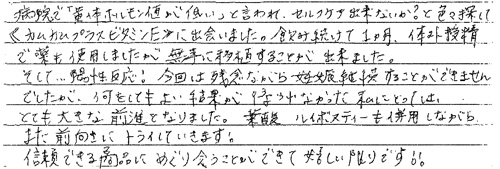 病院で「黄体ホルモン値が低い」と言われ、セルフケア出来ないか?と色々探して
《カムカムプラスビタミンE》に出会いました。飲み続けて1ヵ月、体外授精
で薬も使用しましたが無事に移植することが出来ました。
そして…陽性反応! 今回は残念ながら妊娠継続することができません
でしたが、何をしてもよい結果が得られなかった私にとっては、
とても大きな前進となりました。葉酸 ルイボスティーも併用しながら
また前向きにトライしていきます。
信頼できる商品にめぐり会うことができて嬉しい限りです。